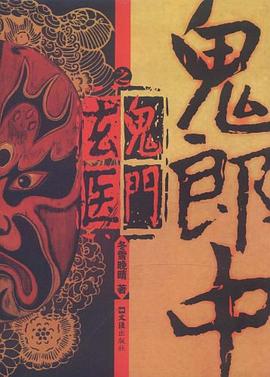 鬼郎中
之
鬼門
玄医
冬雪晚晴 著
文匯出版社